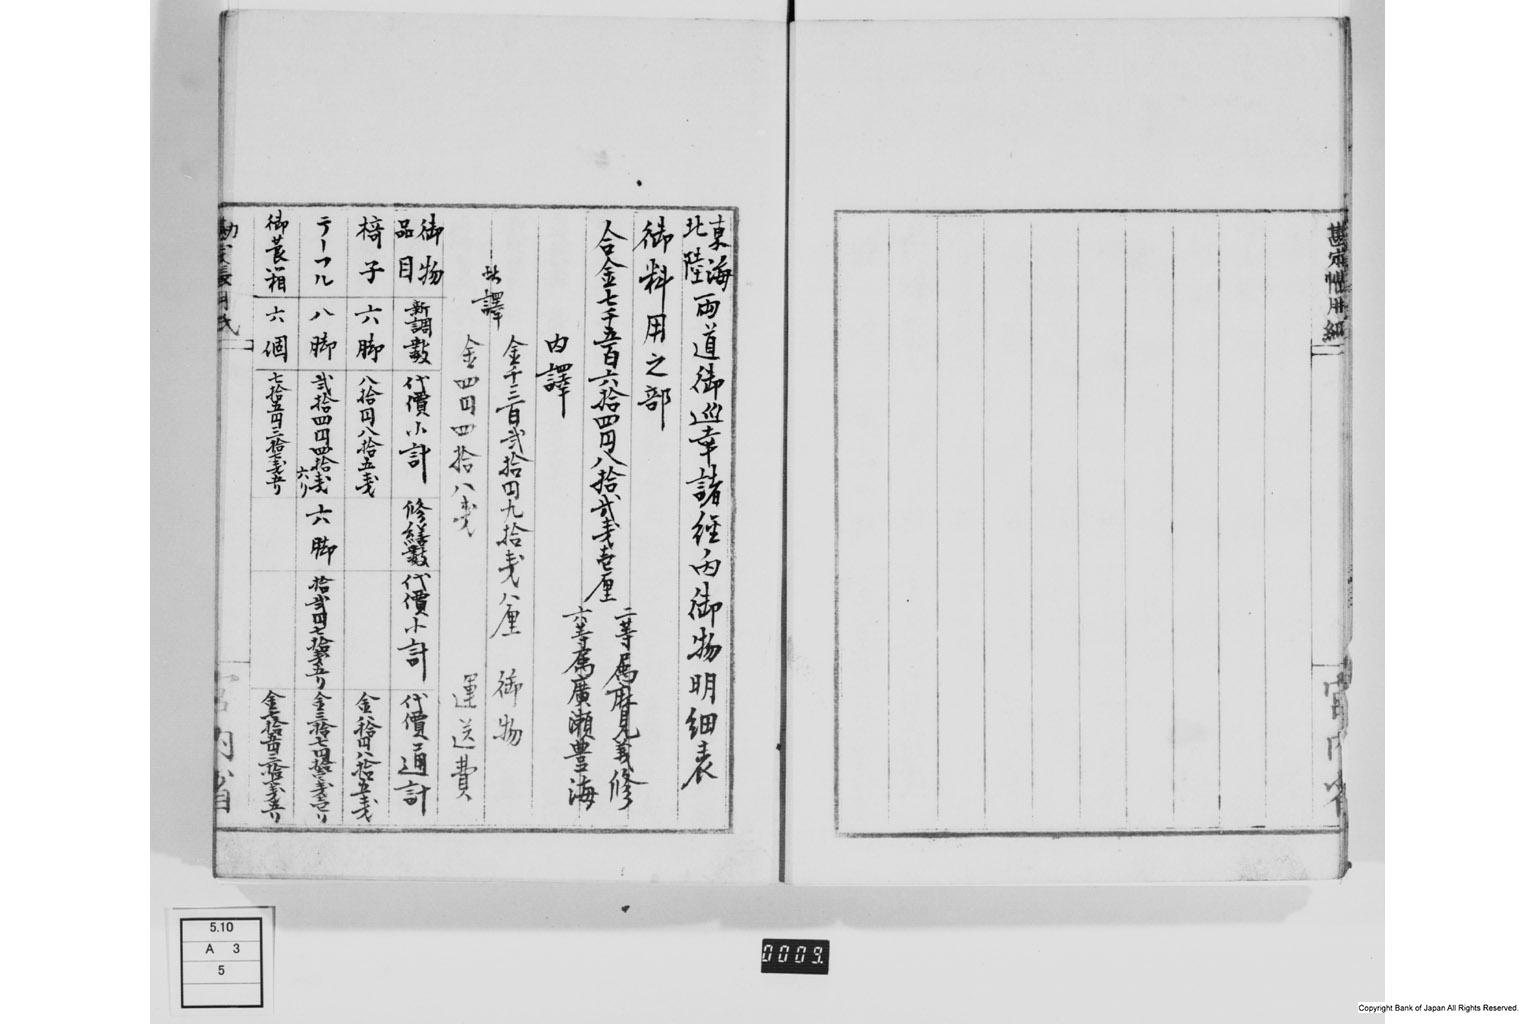 東海
北陸
両道御巡幸諸経内御物明細表
御料用之部
合金七千五百六拾四円八拾弐戔壱厘
二等属麻見義修
六等属廣瀬豊海
内譯
金千三百弐拾円九拾戔八厘 御物
此譯
金四円四拾八戔 運送費
御物品目 新調数 代價小計 修繕数 代價小計 代價通計
椅子 六脚 八拾円八拾五戔 金八拾円八拾五戔
テーフル 八脚 弐拾四円四拾戔六り 六脚 拾弐円七拾戔五り 金三拾七円拾戔壱り
御莨箱 六個 七拾五円三拾七戔五り 金七拾五円三拾七戔五り
宮内省
宮内省
5.10
A 3
5
0009.
Copyright Bank of Japan All Rights Reserved.